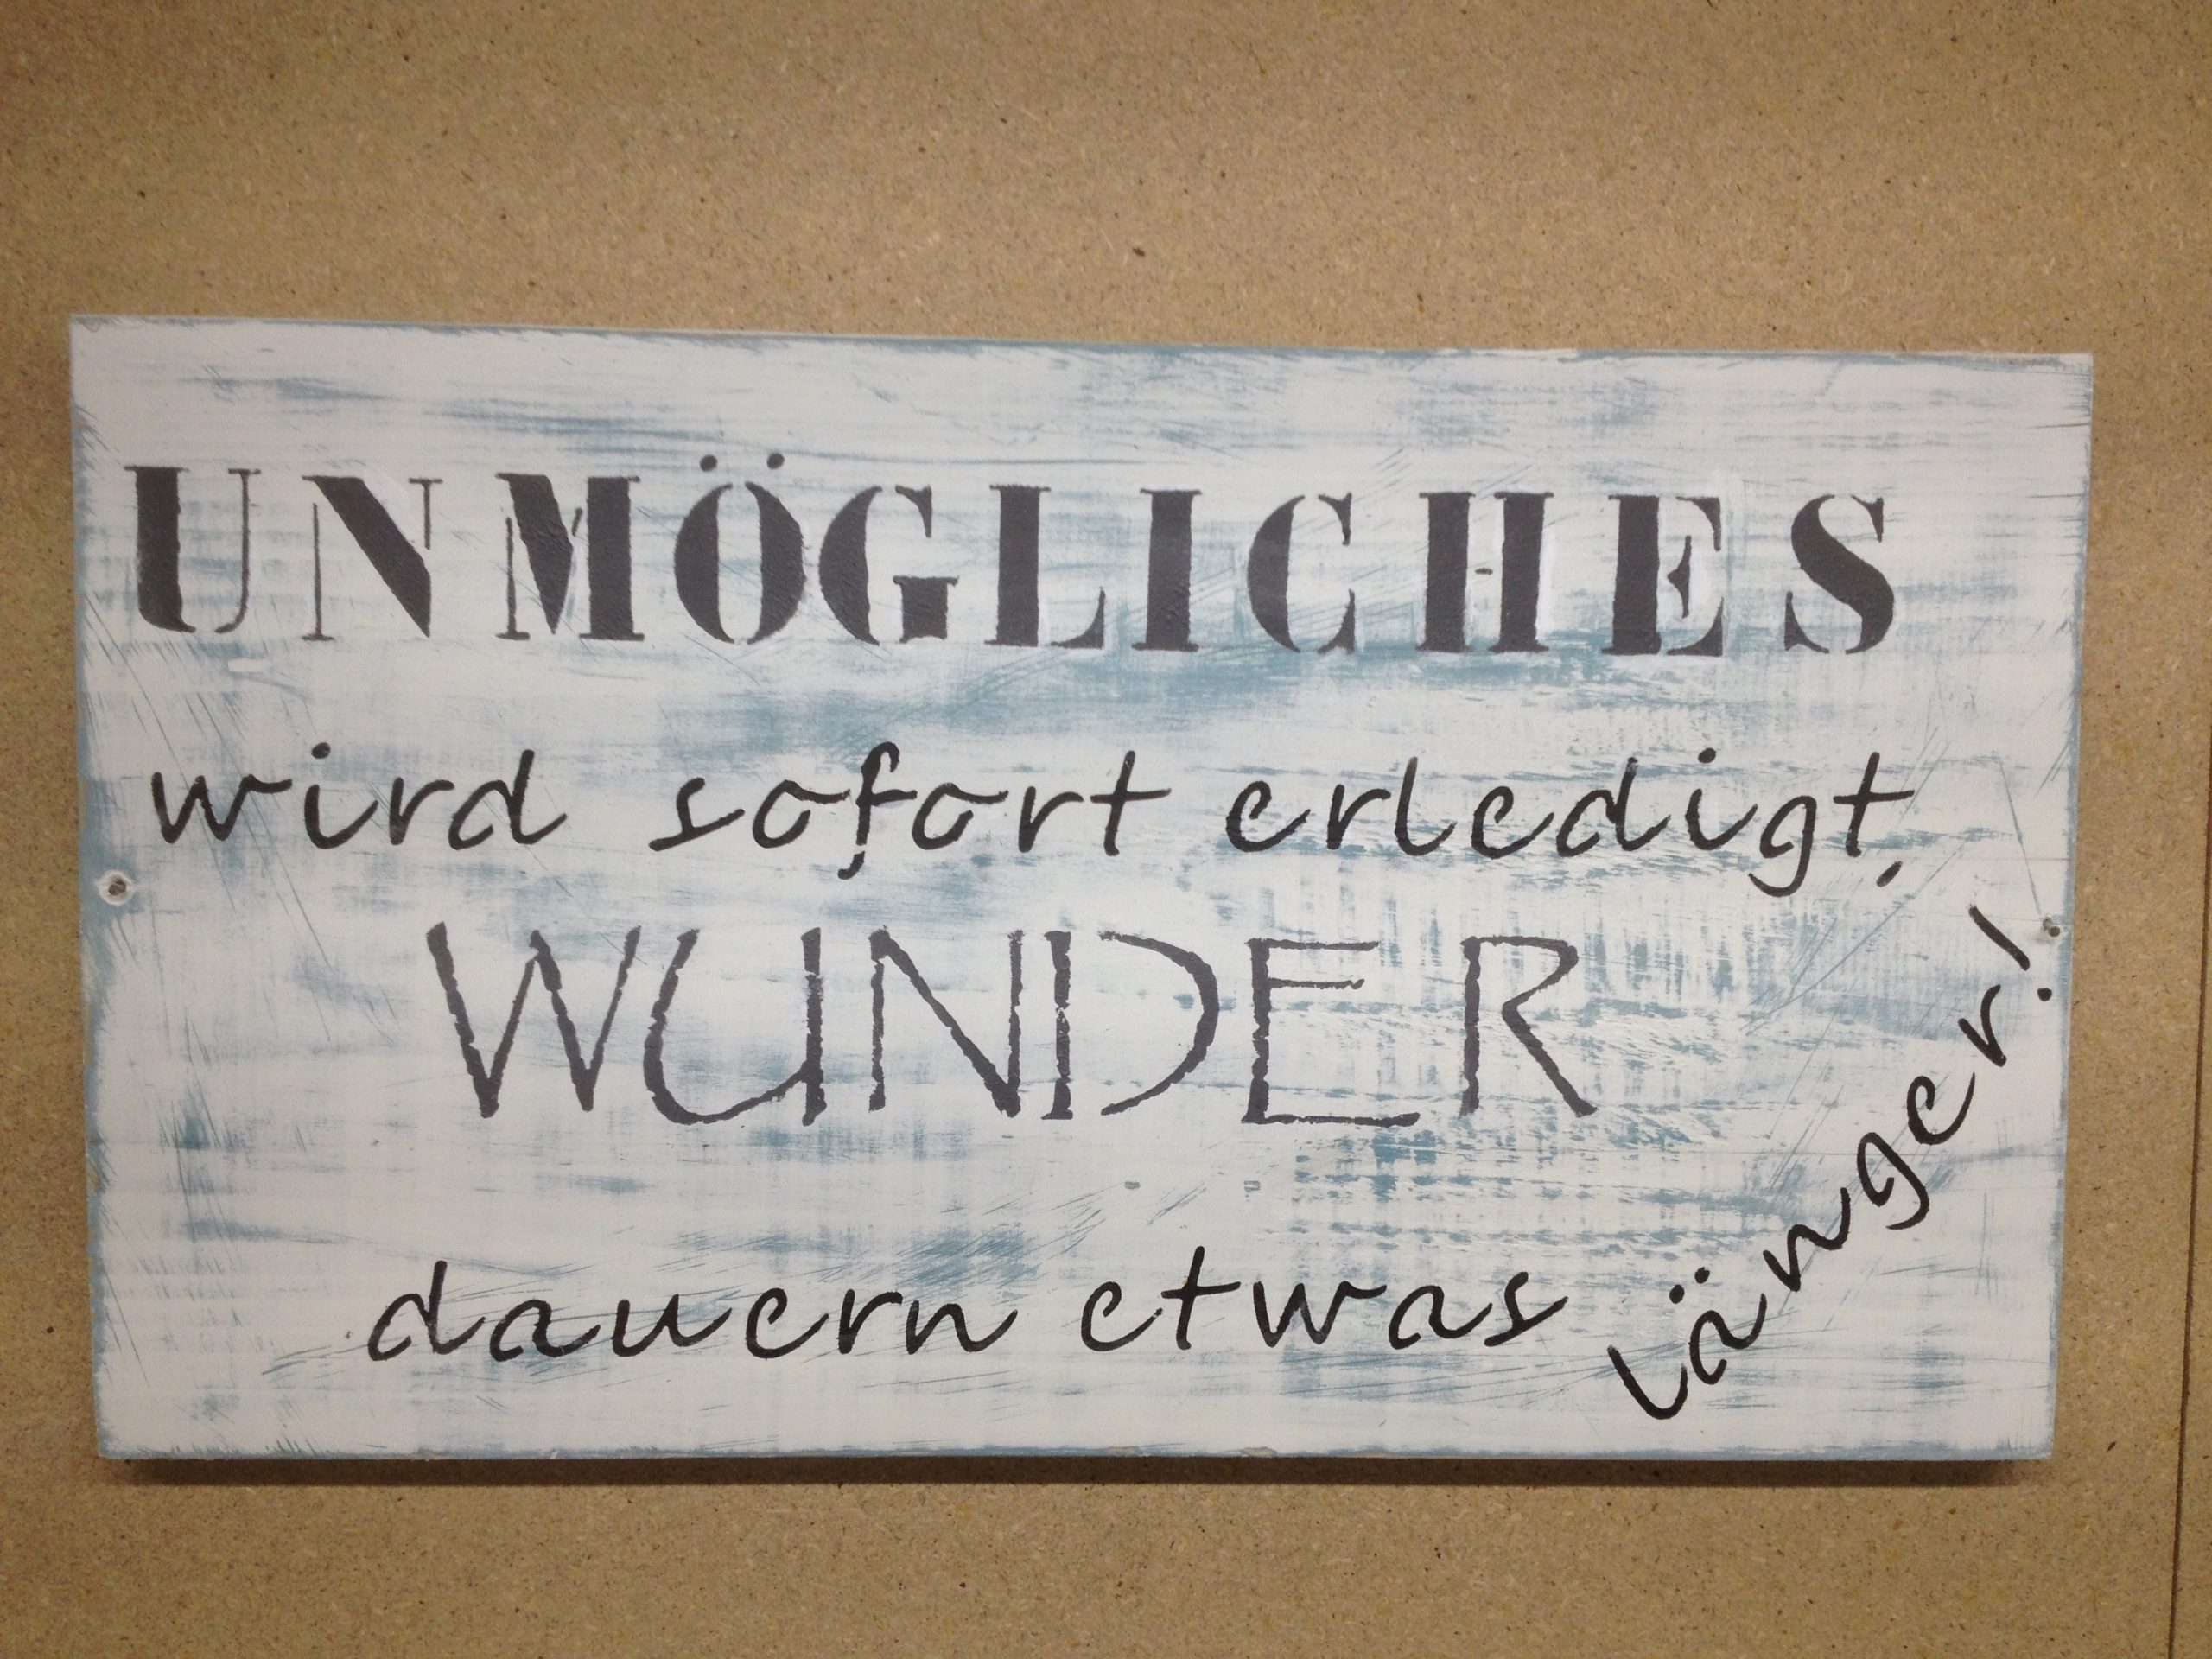 UNMÖGLICHES
wird sofort erledigt,
WUNDER
dauern etwas länger!